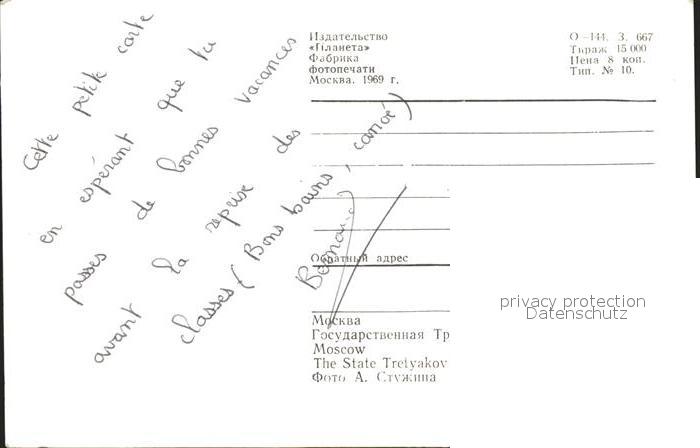 Cette petite carte
en espérant que tu
passes de bonnes vacances
avant la reprise des
classes (Bons bains, canoé)
Издательство
«Планета»
Фабрика
фотопечати
Москва. 1969 г.
О-144. З. 667
Тираж 15 000
Цена 8 коп.
Тип. № 10.
Обратный адрес
privacy protection
Datenschutz
Москва
Государственная Тр
Moscow
The State Tretyakov
Фото А. Стужина